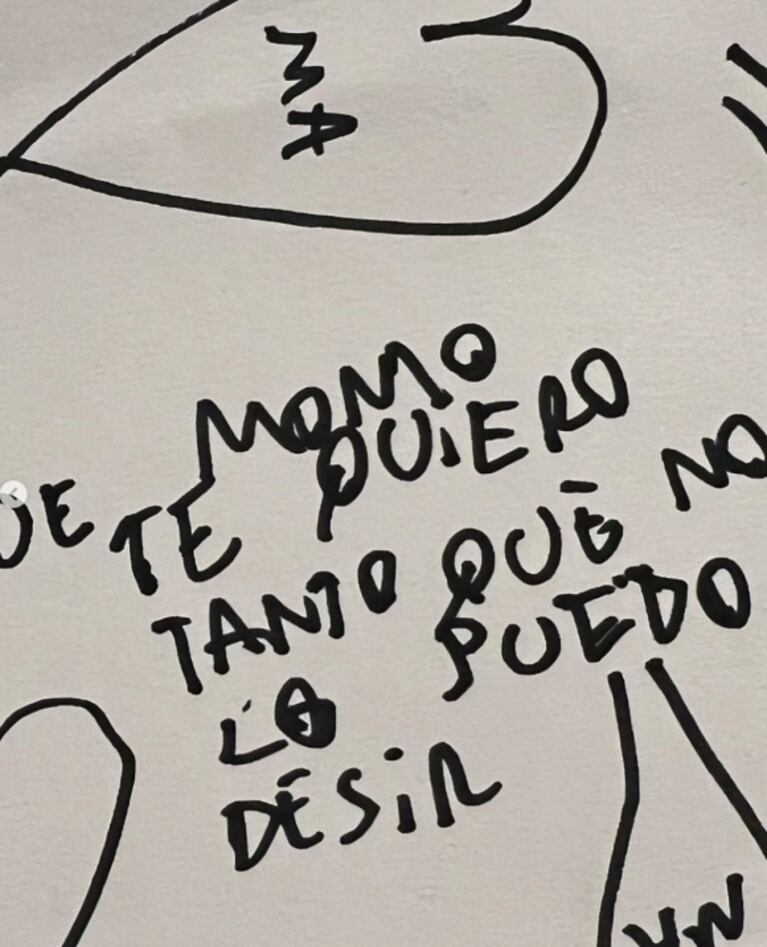 MA
MOMO
TE QUiERO
TANTO QUE NO
LO PUEDO
DESiR